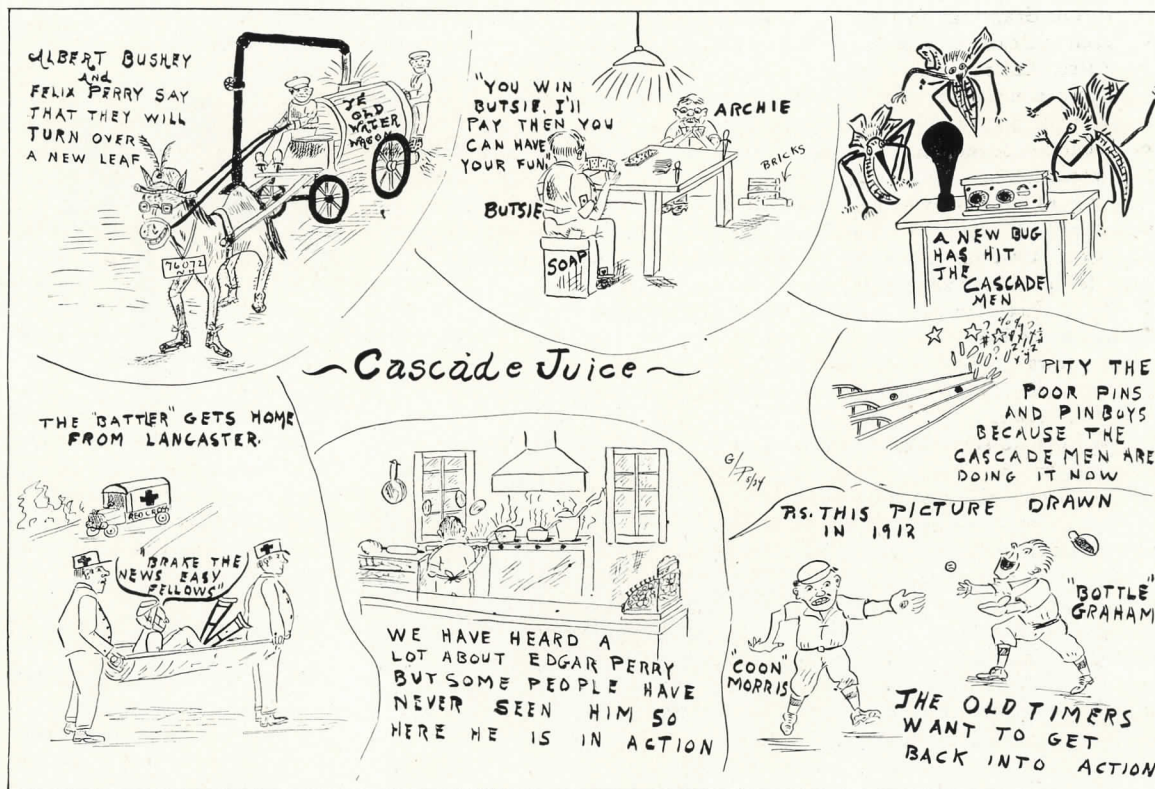 ALBERT BUSHEY
AND
FELIX PERRY SAY
THAT THEY WILL
TURN OVER
A NEW LEAF
YE
OLD
WATER
WAGON
76072
N.H.
"YOU WIN
BUTSIE. I'LL
PAY THEN YOU
CAN HAVE
YOUR FUN"
ARCHIE
BUTSIE
BRICKS
SOAP
A NEW BUG
HAS HIT
THE
CASCADE
MEN
~Cascade Juice~
PITY THE
POOR PINS
AND PIN BOYS
BECAUSE THE
CASCADE MEN ARE
DOING IT NOW
THE "BATTLER" GETS HOME
FROM LANCASTER.
RED CROSS
"BRAKE THE
NEWS EASY
FELLOWS"
WE HAVE HEARD A
LOT ABOUT EDGAR PERRY
BUT SOME PEOPLE HAVE
NEVER SEEN HIM SO
HERE HE IS IN ACTION
G/P 5/34
P.S. THIS PICTURE DRAWN
IN 1912
"COON"
MORRIS
"BOTTLE"
GRAHAM
THE OLD TIMERS
WANT TO GET
BACK INTO ACTION